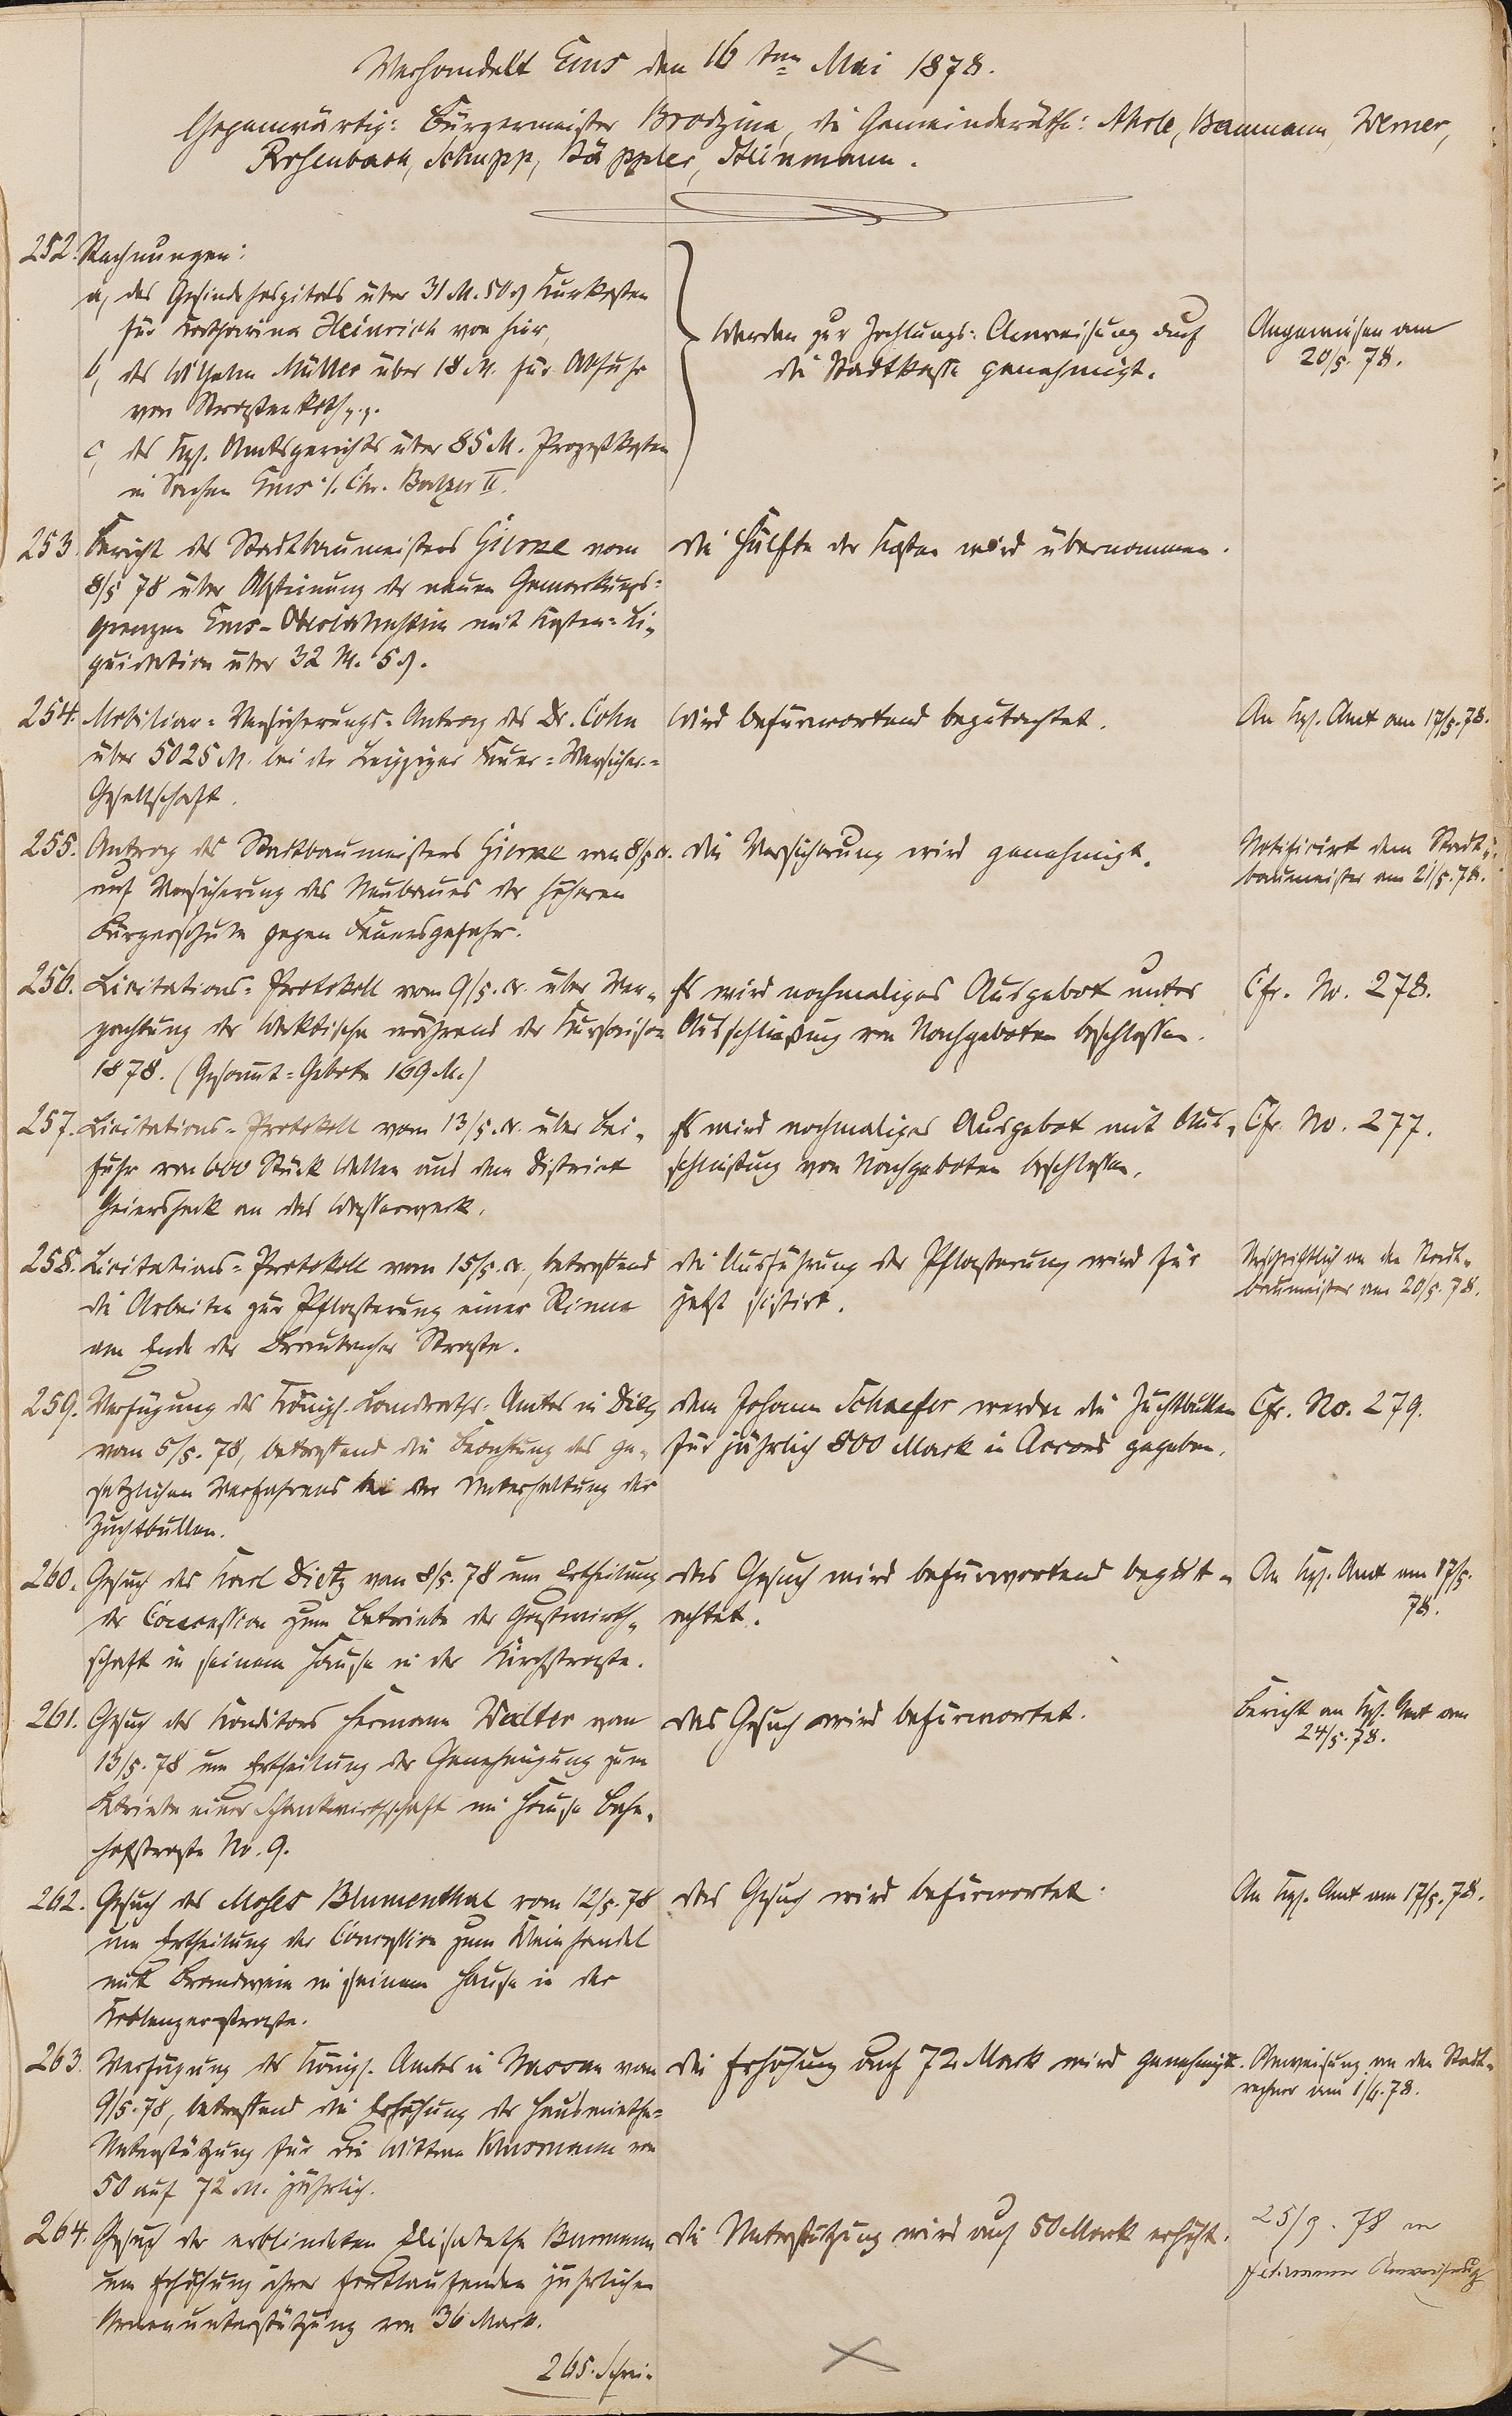 Verhandelt Ems den 16ten Mai 1878.
Gegenwärtig: Bürgermeister Brodzina, die Gemeinderäthe: Baumann, Werner,
Rosenbach, Schupp, Bäppler, Heinmann.
252. Rechnungen:
a, des Gesindehospitals über 31 M. 50 ₰ Kurkosten
für Katharina Heinrich von hier,
b, des Wilhelm Müller über 18 M. für Abfuhr
von Strassenkoth p.p.
c, des Kgl. Amtsgerichts über 85 M. Prozeßkosten
in Sachen Ems ·/. Chr. Balzer II.
Werden zur Zahlungs=Anweisung auf
die Stadtkasse genehmigt.
Angewiesen am
20/5. 78.
253. Bericht des Stadtbaumeisters vom
8/5 78 über Absteinung der neuen Gemarkungs=
grenzen Ems-Oberlahnstein mit Kosten=Li-
quidation über 32 M. 5 ₰.
die Hälfte der Kosten wird übernommen.
254. Mobiliar=Versicherungs=Antrag des Dr. Cohn
über 5025 M. bei der Leipziger Feuer=Versicher.=
Gesellschaft.
Wird befürwortend begutachtet.
An Kgl. Amt am 17/5. 78.
255. Antrag des Stadtbaumeisters vom 8/5 cr.
auf Versicherung des Neubaues der höheren
Bürgerschule gegen Feuersgefahr.
die Versicherung wird genehmigt.
Notificirt dem Stadt-
baumeister am 21/5. 78.
256. Licitations=Protokoll vom 9/5. cr. über Ver-
pachtung der Werktische während der Kursaison
1878. (Gesammt=Gebote 169 M.)
Es wird nochmaliges Ausgebot unter
Ausschließung von Nachgeboten beschlossen.
Cfr. No. 278.
257. Licitations=Protokoll vom 13/5. cr. über Bei-
fuhr von 600 Stück Wellen aus dem District
Geiersheck an das Wasserwerk.
Es wird nochmaliges Ausgebot mit Aus-
schließung von Nachgeboten beschlossen.
Cfr. No. 277.
258. Licitations=Protokoll vom 15/5. cr., betreffend
die Arbeiten zur Pflasterung einer Rinne
am Ende der Braubacher Strasse.
die Ausführung der Pflasterung wird für
jetzt sistirt.
Abschriftlich an den Stadt-
baumeister am 20/5. 78.
259. Verfügung des Königl. Landraths=Amtes in Diez
vom 5/5. 78, betreffend die Beachtung des ge-
setzlichen Verfahrens bei der Unterhaltung der
Zuchtbullen.
dem Johann Schaefer werden die Zuchtbullen
für jährlich 800 Mark in Accord gegeben.
Cfr. No. 279.
260. Gesuch des Karl Dietz vom 8/5. 78 um Ertheilung
der Concession zum Betriebe der Gastwirth-
schaft in seinem Hause in der Kirchstrasse.
das Gesuch wird befürwortend begut-
achtet.
An Kgl. Amt am 17/5.
78.
261. Gesuch des Konditors Hermann Walter vom
13/5. 78 um Ertheilung der Genehmigung zum
Betriebe einer Schankwirthschaft im Hause Bahn-
hofstrasse No. 9.
das Gesuch wird befürwortet.
Bericht an Kgl. Amt am
24/5. 78.
262. Gesuch des Moses Blumenthal vom 12/5. 78
um Ertheilung der Concession zum Kleinhandel
mit Brandwein in seinem Hause in der
Koblenzerstrasse.
das Gesuch wird befürwortet.
An Kgl. Amt am 17/5. 78.
263. Verfügung des Königl. Amtes in Nassau vom
9/5. 78, betreffend die Erhöhung der Hausmiethe=
Unterstützung für die Wittwe von
50 auf 72 M. jährlich.
die Erhöhung auf 72 Mark wird genehmigt.
Anweisung an den Stadt-
rechner am 1/6. 78.
264. Gesuch der erblindeten Elisabethe
um Erhöhung ihrer fortlaufenden jährlichen
Armenunterstützung von 36 Mark.
die Unterstützung wird auf 50 Mark erhöht.
25/9. 78
Anweisung
265. Schrei-